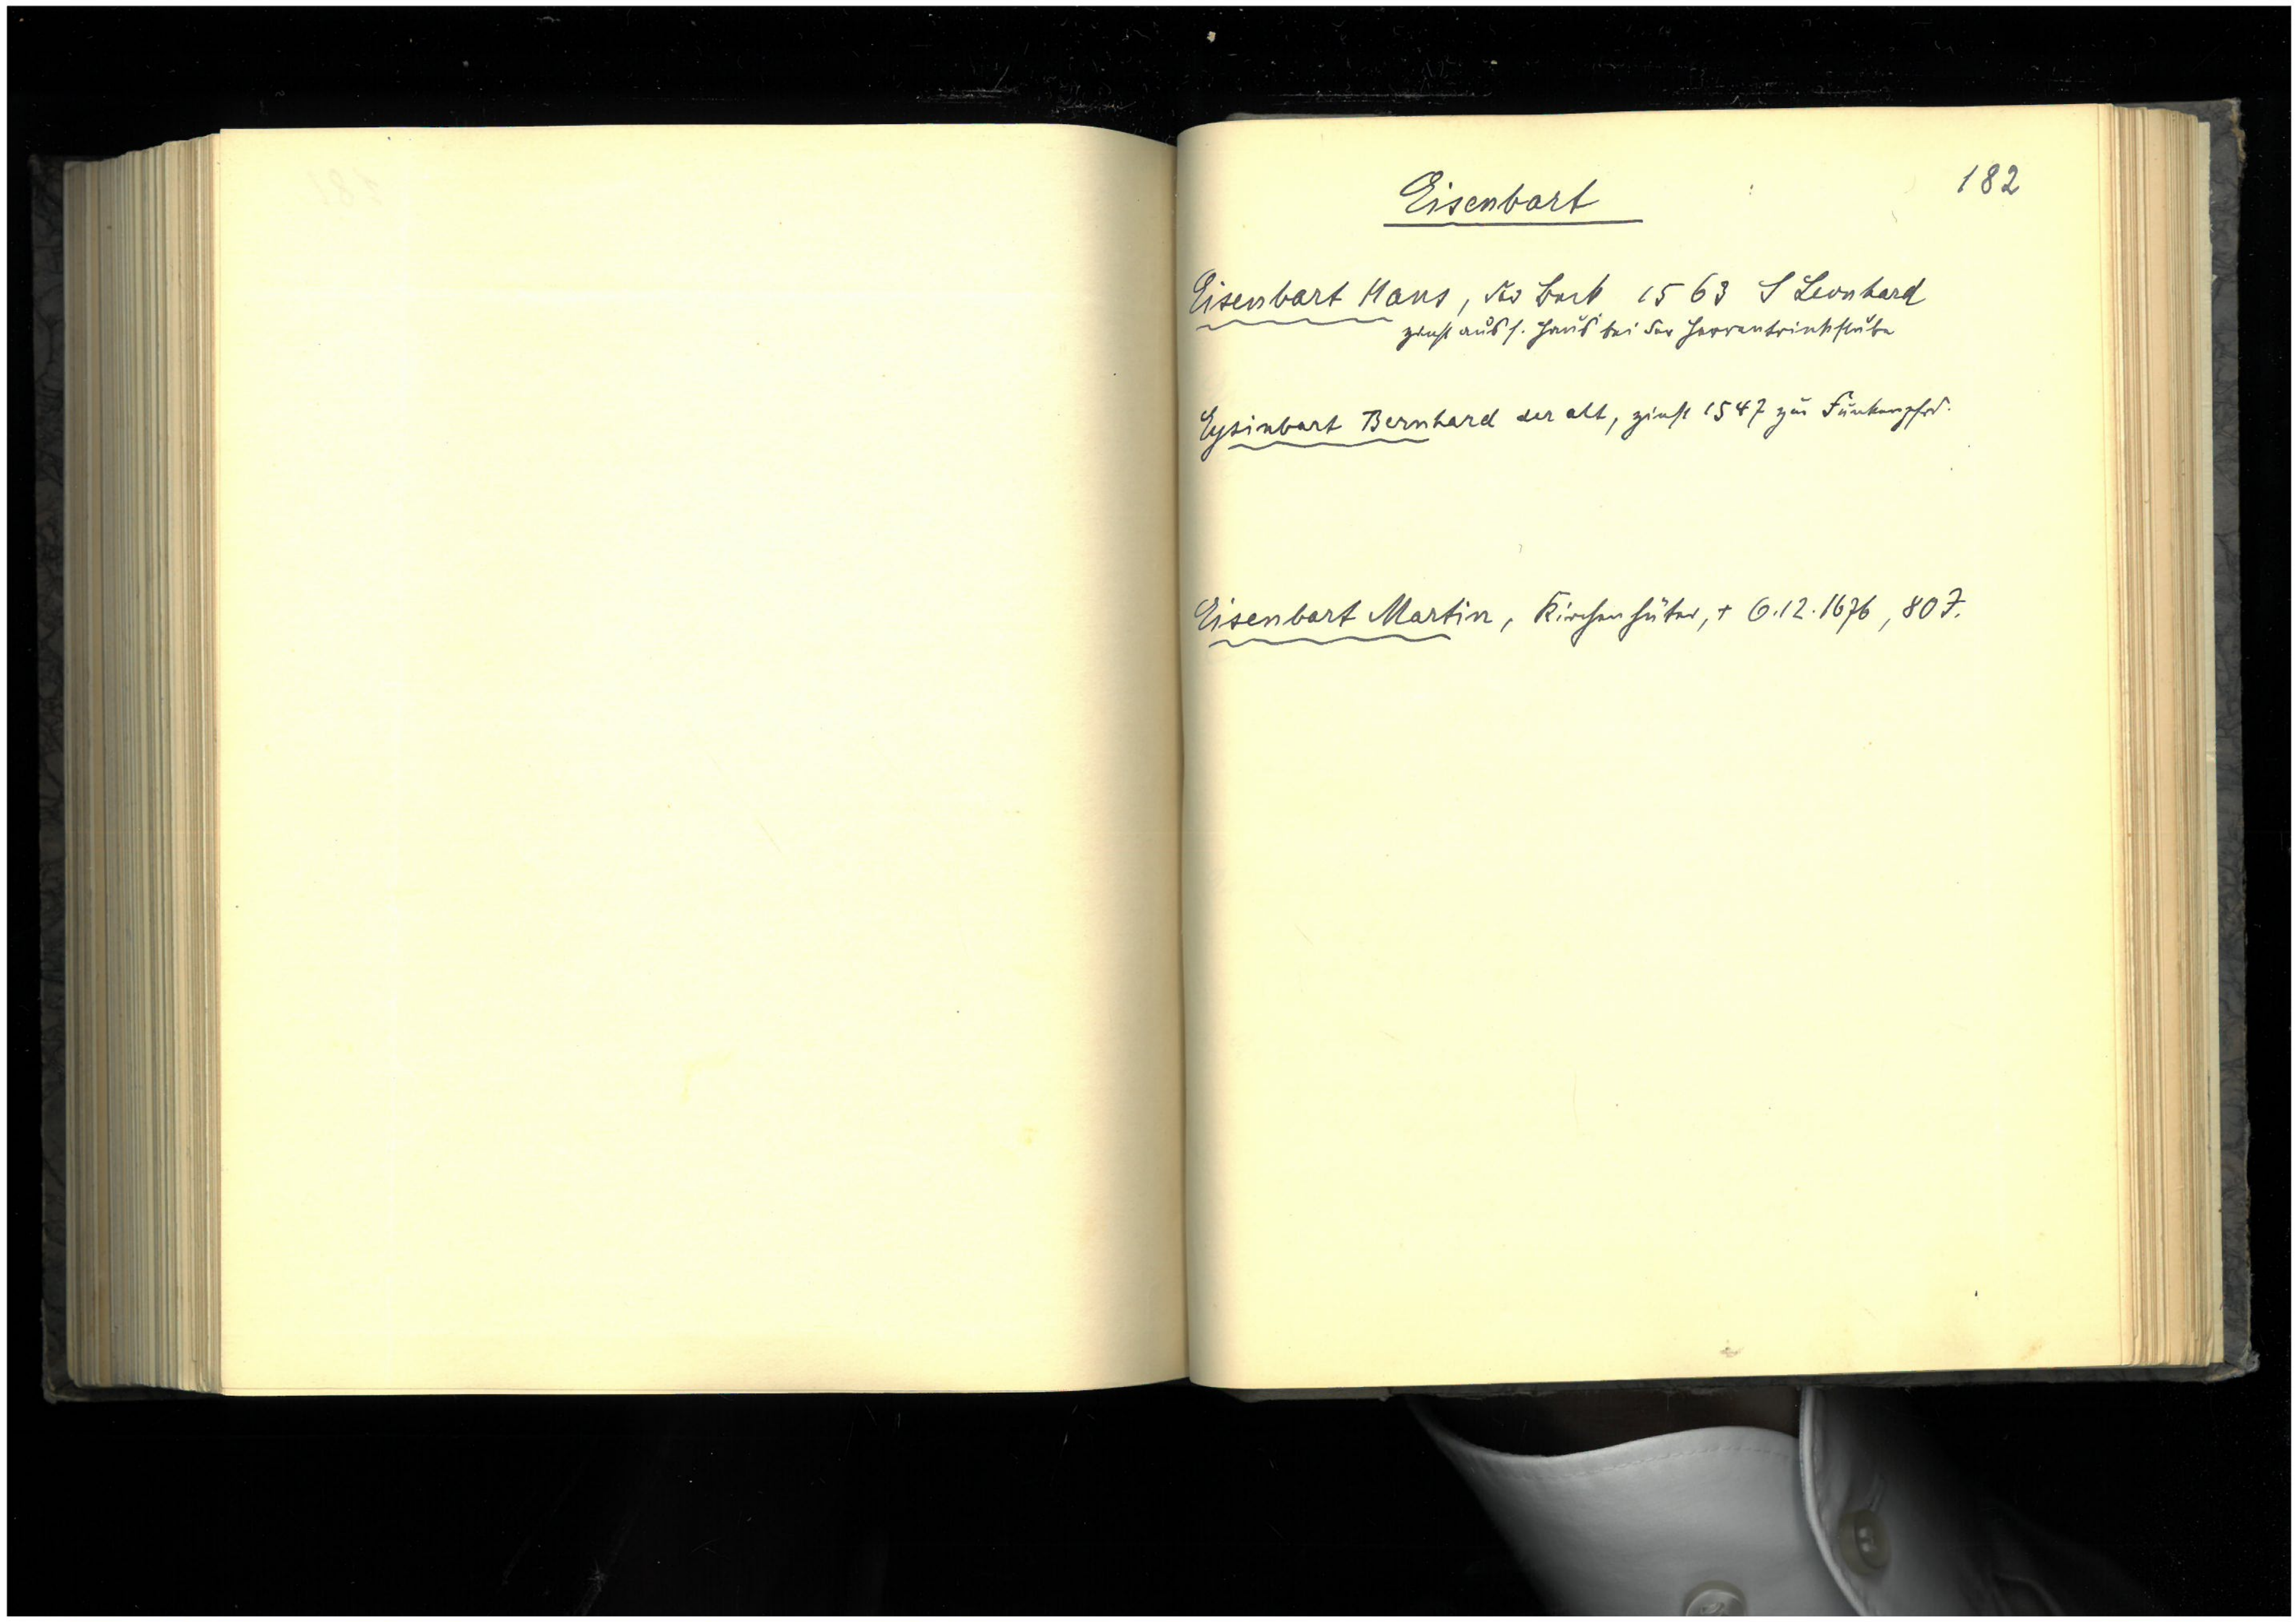 182
Eisenbart
Eisenbart Hans, der beck 1563 S Leonhard
zinst aus s. Haus bei der Herrentrinkstube
Eysinbart Bernhard der alt, zinst 1547 zur
Eisenbart Martin, Kirchenhüter, + 6.12.1676, 80 J.